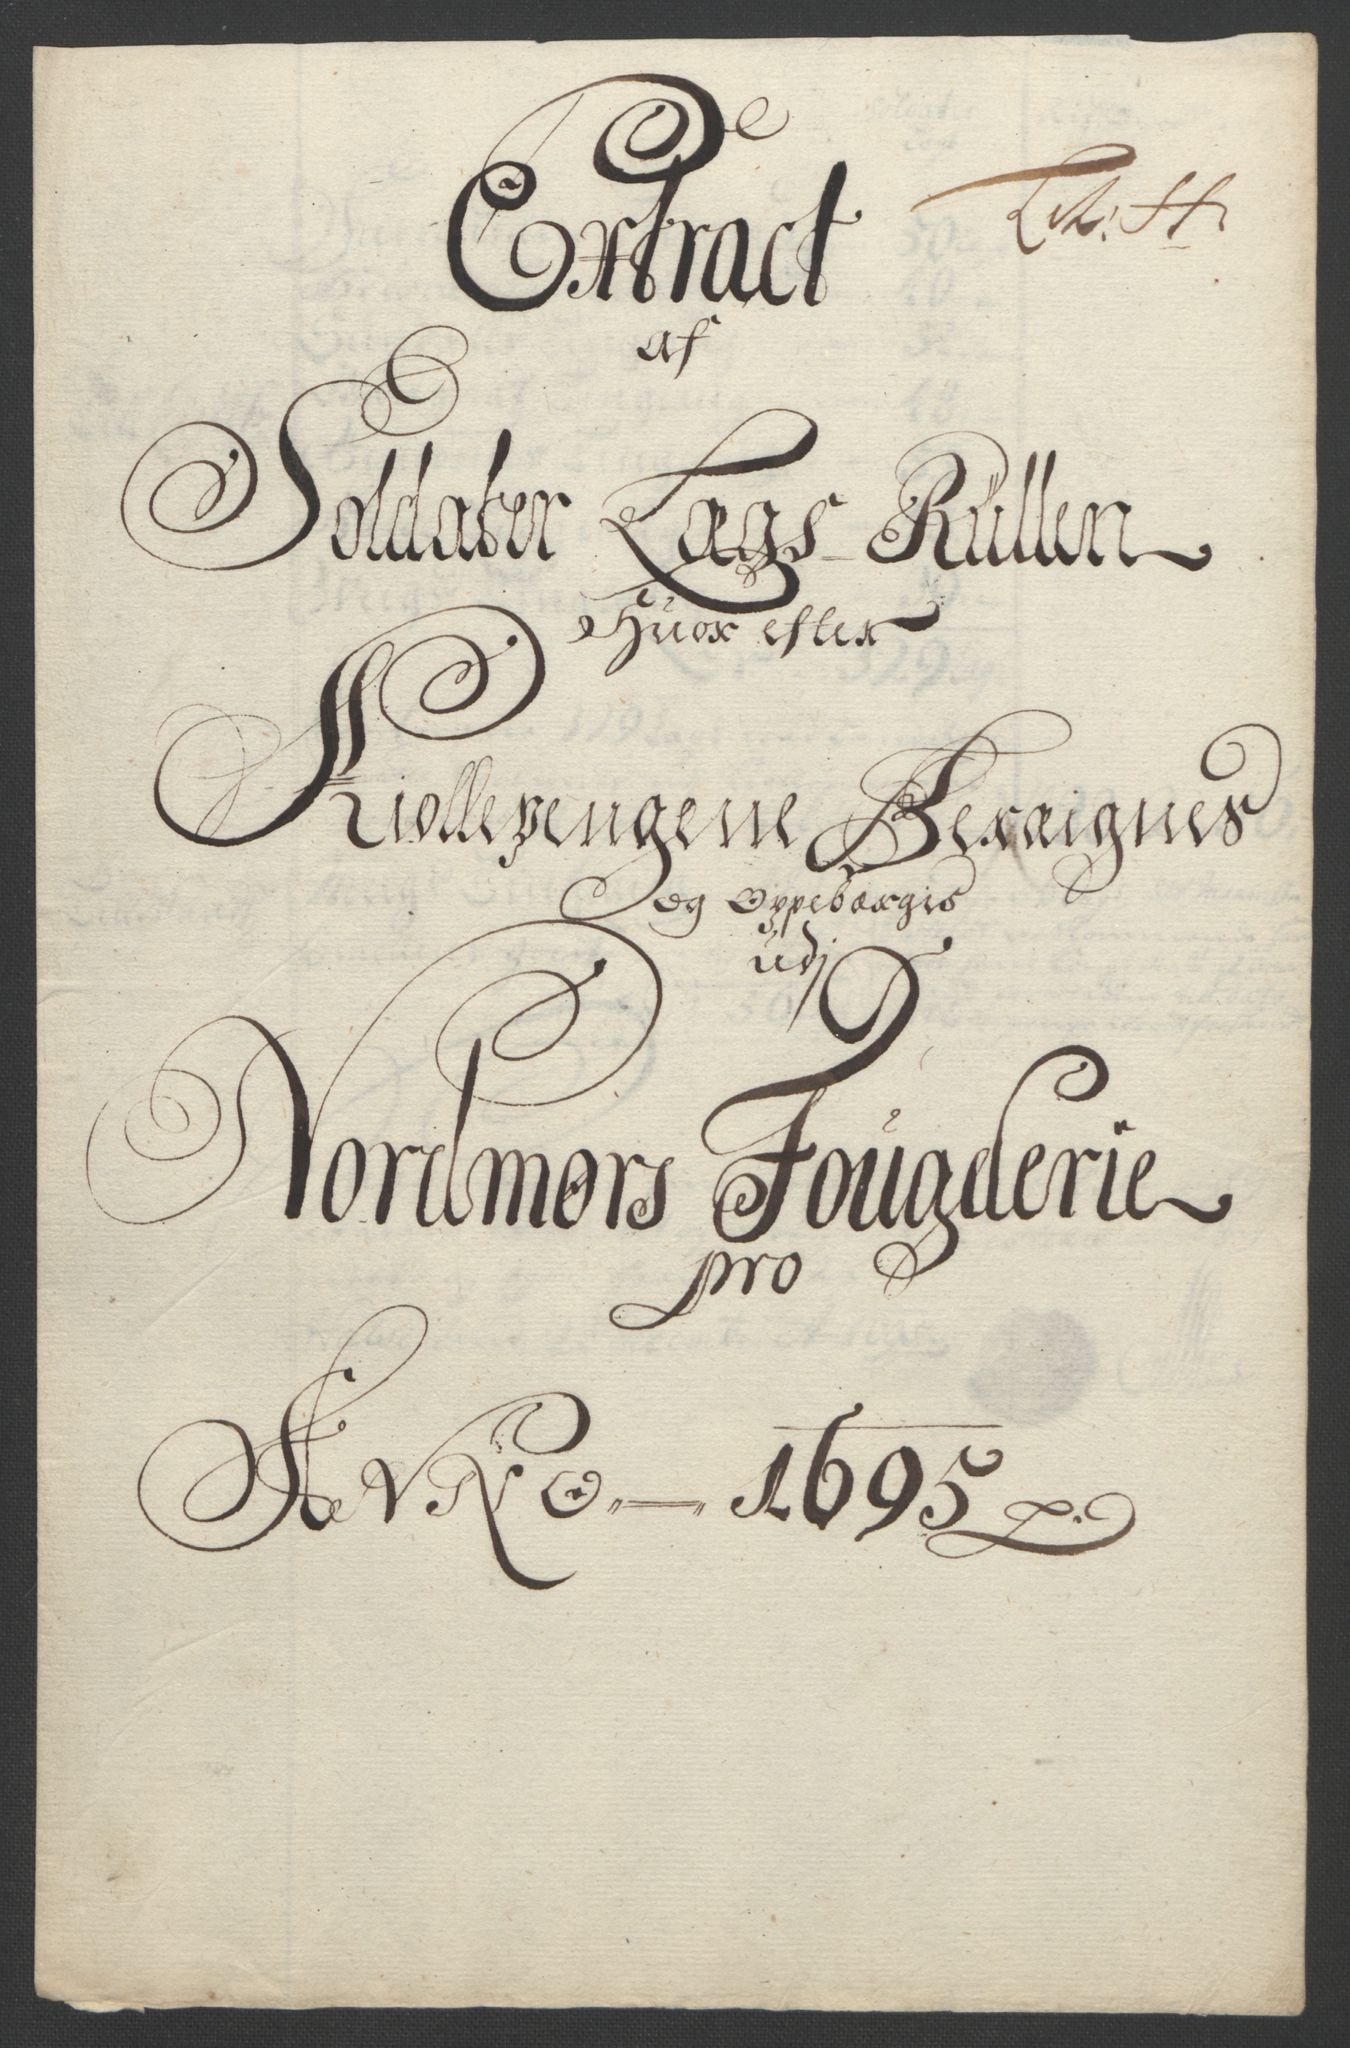 Extract
Litr: H.
af
Soldater Lægs Rullen
Huor efter
Kiollepengene Beraignes
og Oppebærges
udj
Nordmørs Fougderie
pro
ANNO 1695